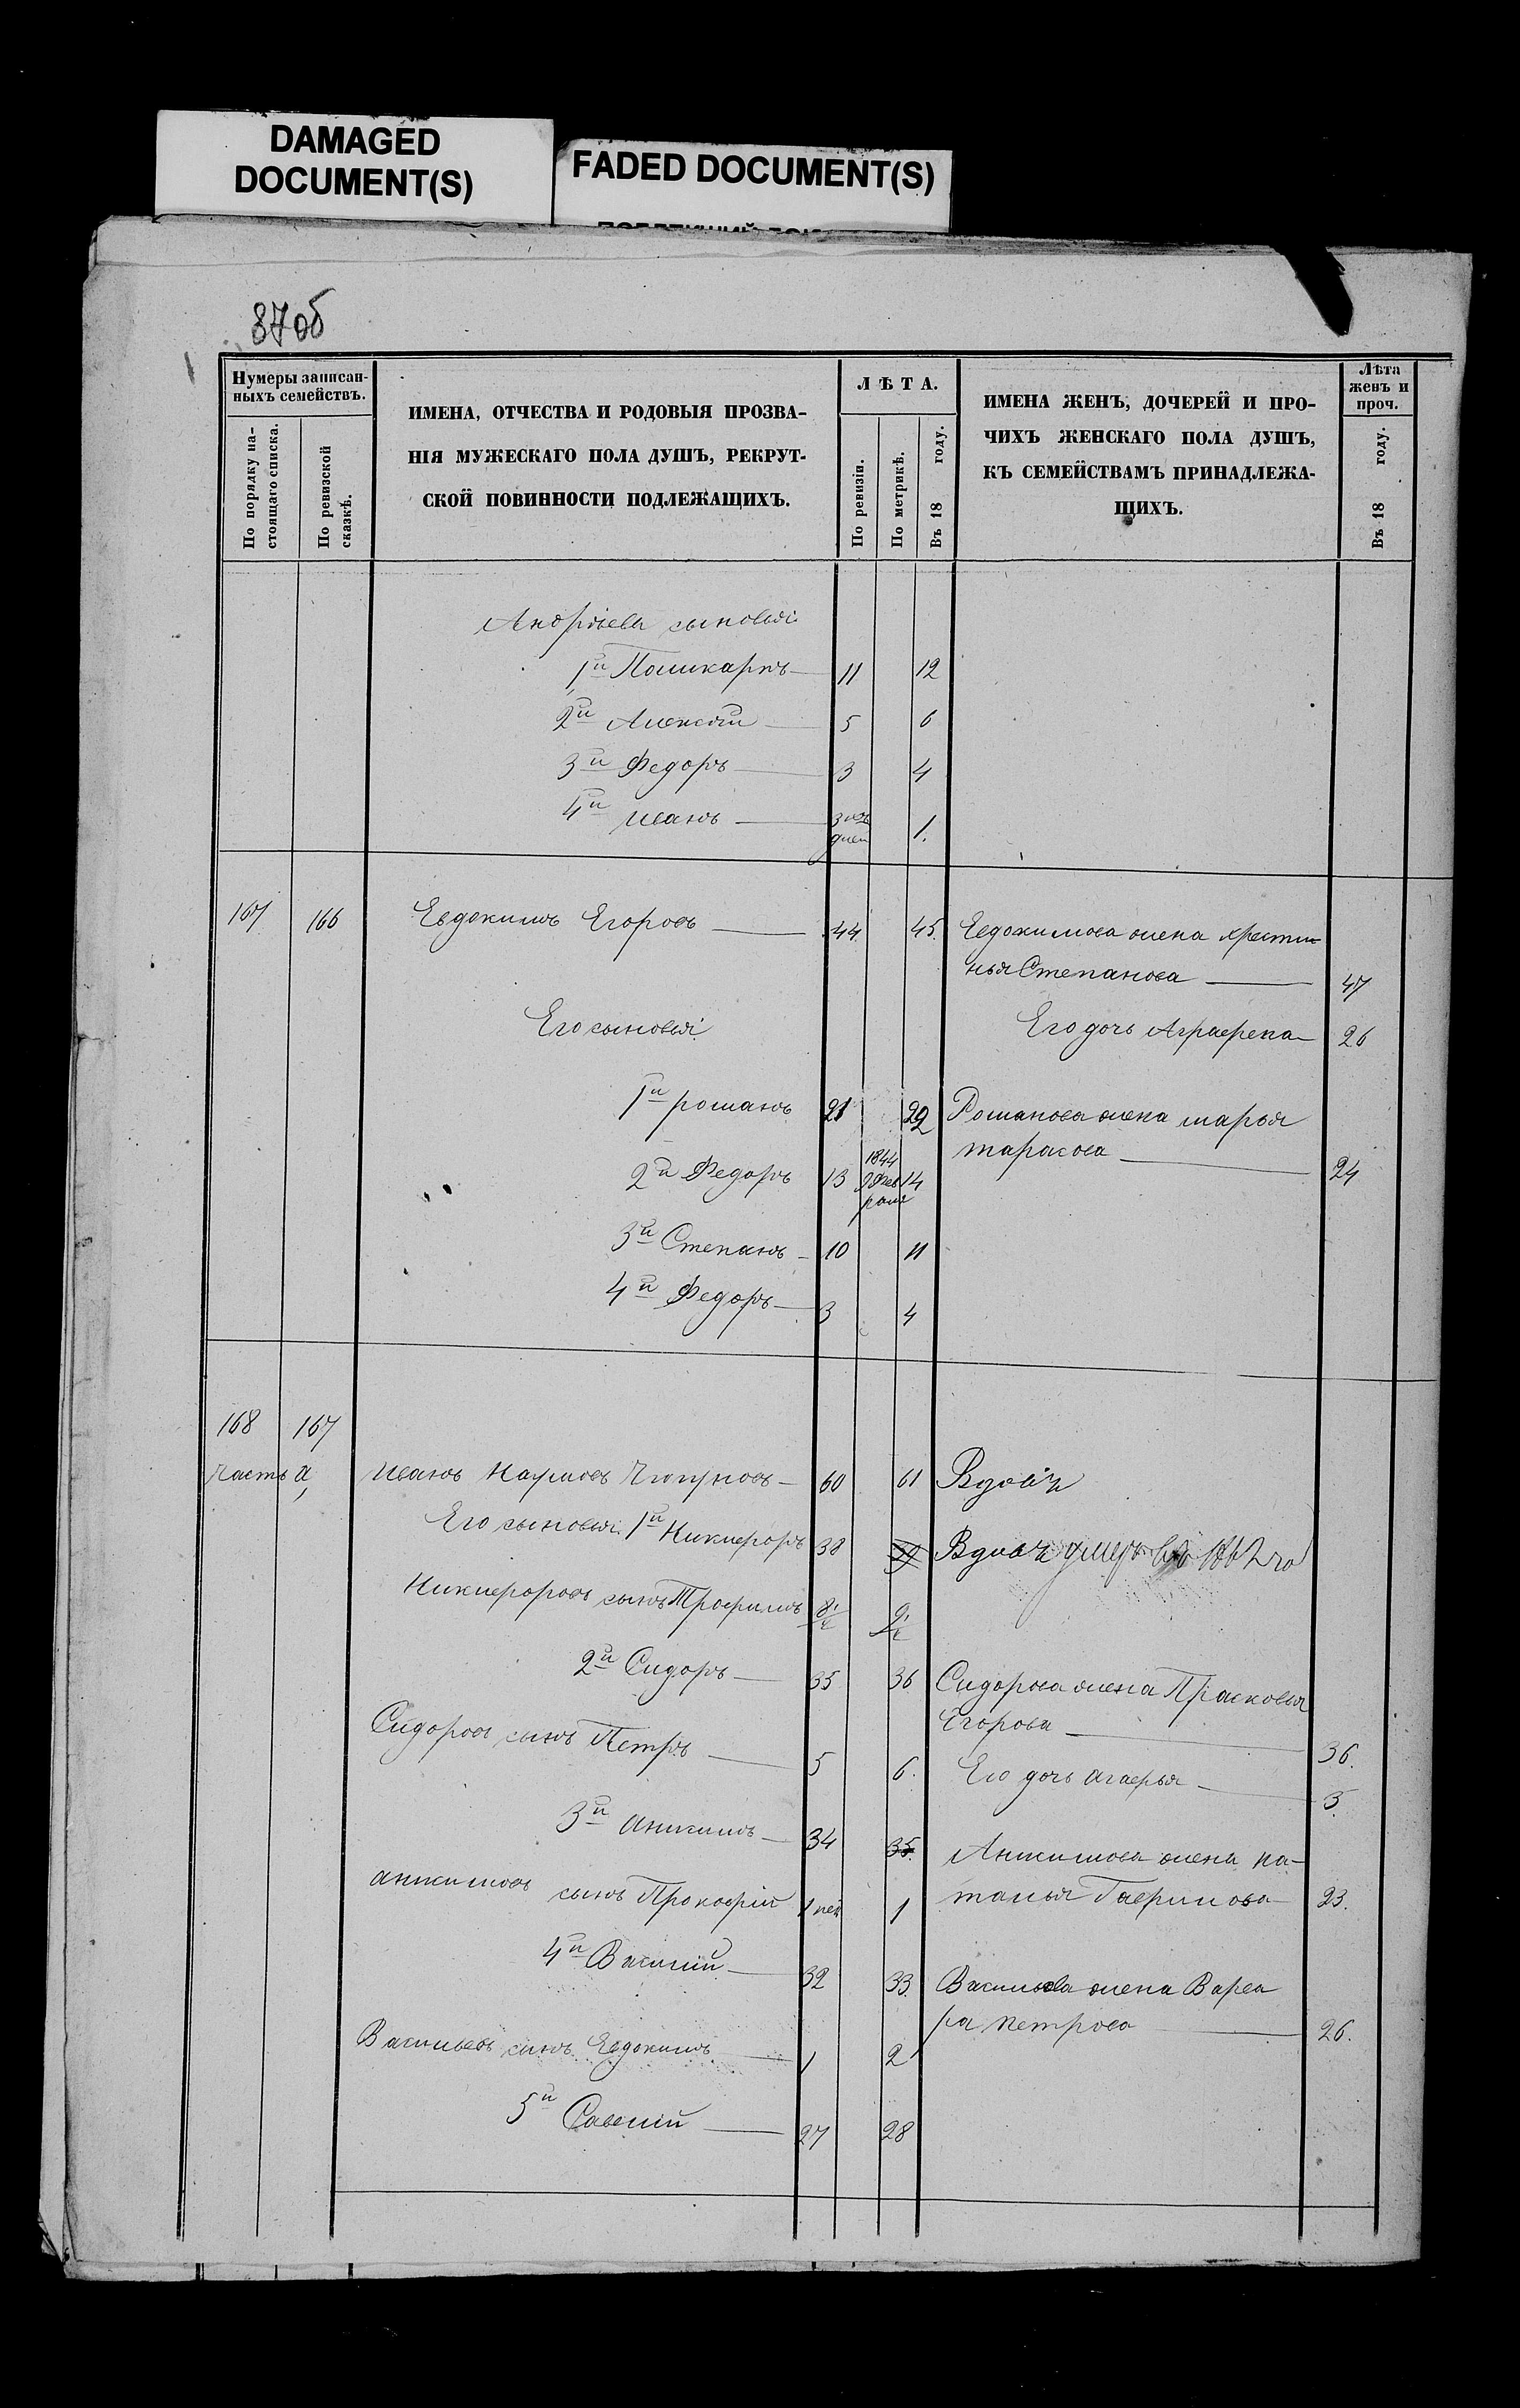 DAMAGED
DOCUMENT(S)
FADED DOCUMENT(S)
87об
Нумеры записан-
ныхъ семействъ.
По порядку на-
стоящаго списка.
По ревизской
сказкѣ.
ИМЕНА, ОТЧЕСТВА И РОДОВЫЯ ПРОЗВА-
НІЯ МУЖЕСКАГО ПОЛА ДУШЪ, РЕКРУТ-
СКОЙ ПОВИННОСТИ ПОДЛЕЖАЩИХЪ.
ЛѢТА.
По ревизіи.
По метрикѣ.
Въ 18 году.
ИМЕНА ЖЕНЪ, ДОЧЕРЕЙ И ПРО-
ЧИХЪ ЖЕНСКАГО ПОЛА ДУШЪ,
КЪ СЕМЕЙСТВАМЪ ПРИНАДЛЕЖА-
ЩИХЪ.
Лѣта
женъ и
проч.
Въ 18 году.
Андрѣевы сыновья
1й Поликарпъ 11 12
2й Алексѣй 5 6
3й Федоръ 3 4
4й Иванъ дней 1.
167 166 Евдокимъ Егоровъ 44 45. Евдокимова жена христи
нья Степанова 47
Его сыновья Его дочь Аграфена 26
1й романъ 21 22 Романова жена марья
тарасова 24
2й Федоръ 13 1844 9 Фев раля 14
3й Степанъ 10 11
4й Федоръ 3 4
168 167
Часть а,
Иванъ Наумовъ Чюпуновъ 60 61 Вдовъ
Его сыновья 1й Никифоръ 38 39 Вдовъ умеръ въ
Никифоровъ сынъ Трофимъ 8 9
2й Сидоръ 35 36 Сидорова жена Прасковья
Егорова 36.
Сидоровъ сынъ Петръ 5 6. Его дочь Агафья 5.
3й Анкимъ 34 35. Анкимова жена на-
талья Гаврилова 23.
анкимовъ сынъ Прокофій 1 нед 1
4й Василій 32 33. Васильева жена Варва
ра петрова 26.
Васильевъ сынъ Евдокимъ 1 2
5й Савелій 27 28